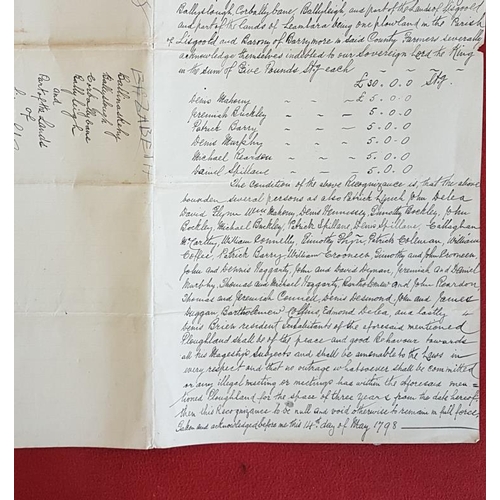 Ballyslough, Corballybane, Ballyleigh, and part of the Lands of Lisgoold
and part of the Lands of Leamlara being one plowland in the Parish
of Lisgoold and Barony of Barrymore in said County Farmers severally
acknowledge themselves indebted to our Sovereign Lord the King
in the sum of Five Pounds Stg each
£30.0.0 Stg.
Denis Mahony - - £5.0.0
Jeremiah Buckley - - 5.0.0
Patrick Barry - - 5.0.0
Denis Murphy - - 5.0.0
Michael Reardon - - 5.0.0
Daniel Spillane - - 5.0.0
The Condition of the above Recognizance is, that the above
bounden severall persons as also Patrick Lynch John Delea
David Flynn Wm Mahony, Denis Hennessy Timothy Buckley, John
Buckley Michael Buckley, Patrick Spillane, Denis Spillane, Callaghan
McCarthy, William Donnelly, Timothy Patrick Coleman, William
Patrick Barry William Croneen Timothy and John Croneen
John and Dennis Haggarty, John and David Dynan, Jeremiah and Daniel
Murphy, Thomas and Michael Haggarty, Bartholomew and John Reardon,
Thomas and Jeremiah Connell, Denis Desmond, John and James
Duggan, Bartholomew Collins, Edmond Delea and lastly,
Denis Brien resident Inhabitants of the aforesaid mentioned
Ploughland shall be of the peace and good Behavour towards
all his Magestys Subjects and shall be amenable to the Laws in
every respect and that no outrage whatsoever shall be committed
or any illegal meeting or meetings has within the aforesaid men-
tioned Ploughland for the space of three years from the date hereof
then this Recognizance to be null and void otherwise to remain in full force.
Taken and acknowledged before me this 14th day of May 1798
ELIZABETH
Ballinaskehy
Ballyslough
Corballybane
Ballyleigh
and
Part of the Lands
of